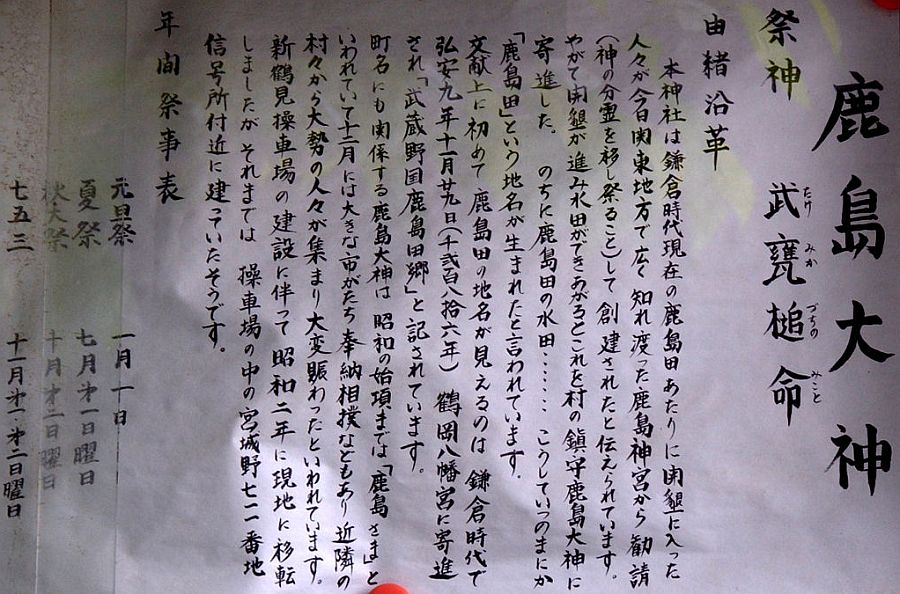 鹿島大神
祭神 武甕槌命
たけ みか づちの みこと
由緒沿革
本神社は鎌倉時代現在の鹿島田あたりに開墾に入った
人々が今日関東地方で広く知れ渡った鹿島神宮から勧請
(神の分霊を移し祭ること)して創建されたと伝えられています。
やがて開墾が進み水田ができあがるとこれを村の鎮守鹿島大神に
寄進した。 のちに鹿島田の水田‥‥‥こうしていつのまにか
「鹿島田」という地名が生まれたと言われています。
文献上に初めて鹿島田の地名が見えるのは鎌倉時代で
弘安九年十一月廿九日(千弐百八拾六年) 鶴岡八幡宮に寄進
され「武蔵野国鹿島田郷」と記されています。
町名にも関係する鹿島大神は昭和の始頃までは「鹿島さま」と
いわれていて十二月には大きな市がたち奉納相撲などもあり近隣の
村々から大勢の人々が集まり大変賑わったといわれています。
新鶴見操車場の建設に伴って昭和二年に現地に移転
しましたがそれまでは 操車場の中の宮城野七一一番地
信号所付近に建っていたそうです。
年間祭事表
元旦祭 一月一日
夏祭 七月才一日曜日
秋大祭 十月才二日曜日
七五三 十一月才一・才二日曜日